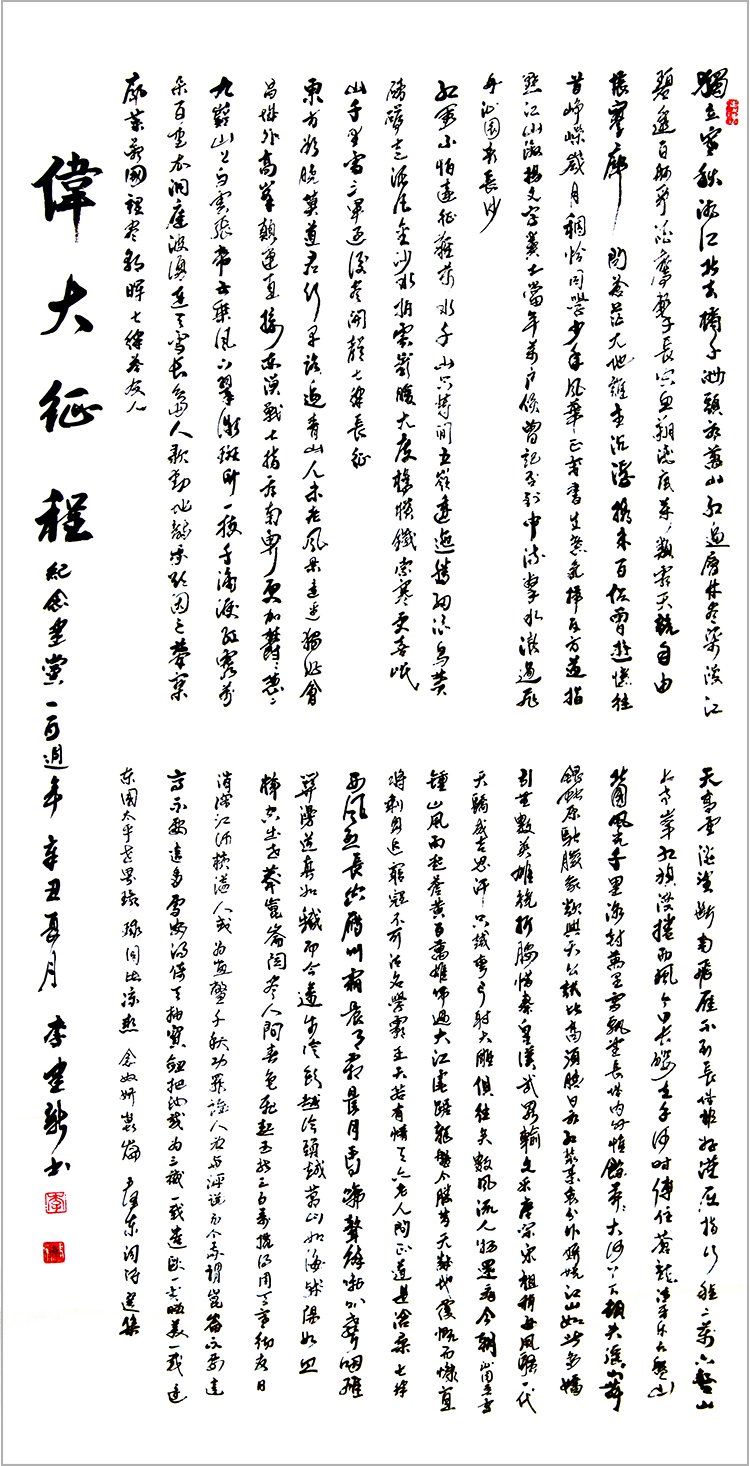 獨立寒秋湘江北去橘子洲頭看萬山紅遍層林盡染漫江
碧透百舸爭流鷹擊長空魚翔淺底萬類霜天競自由
悵寥廓問蒼茫大地誰主沉浮攜來百侶曾遊憶往
昔崢嶸歲月稠恰同學少年風華正茂書生意氣揮斥方遒指
點江山激揚文字糞土當年萬戶侯曾記否到中流擊水浪遏飛
舟沁園春長沙
紅軍不怕遠征難萬水千山只等閒五嶺逶迤騰細浪烏蒙
磅礴走泥丸金沙水拍雲崖暖大渡橋橫鐵索寒更喜岷
山千里雪三軍過後盡開顏七律長征
東方欲曉莫道君行早踏遍青山人未老風景這邊獨好會
昌城外高峯顛連直接東溟戰士指看南粵更加鬱鬱蔥蔥
九嶷山上白雲飛帝子乘風下翠微斑竹一枝千滴淚紅霞萬
朵百重衣洞庭波湧連天雪長島人歌動地詩我欲因之夢寥
廓芙蓉國裡盡朝暉七律答友人
天高雲淡望斷南飛雁不到長城非好漢屈指行程二萬六盤山
上高峯紅旗漫捲西風今日長纓在手何時縛住蒼龍清平樂六盤山
北國風光千里冰封萬里雪飄望長城內外惟餘莽莽大河上下頓失滔滔山舞
銀蛇原馳臘象欲與天公試比高須晴日看紅裝素裹分外妖嬈江山如此多嬌
引無數英雄競折腰惜秦皇漢武略輸文采唐宗宋祖稍遜風騷一代
天驕成吉思汗只識彎弓射大雕俱往矣數風流人物還看今朝沁園春雪
鍾山風雨起蒼黃百萬雄師過大江虎踞龍盤今勝昔天翻地覆慨而慷宜
將剩勇追窮寇不可沽名學霸王天若有情天亦老人間正道是滄桑七律
西風烈長空雁叫霜晨月霜晨月馬蹄聲碎喇叭聲咽雄
關漫道真如鐵而今邁步從頭越從頭越蒼山如海殘陽如血
橫空出世莽崑崙閱盡人間春色飛起玉龍三百萬攪得周天寒徹夏日
消溶江河橫溢人或為魚鱉千秋功罪誰人曾與評說而今我謂崑崙不要這
高不要這多雪安得倚天抽寶劍把汝裁為三截一截遺歐一截贈美一截還
東國太平世界環球同此涼熱 念奴嬌崑崙 毛澤東詩詞選集
偉大征程 紀念建黨一百週年 辛丑夏月 李建新书